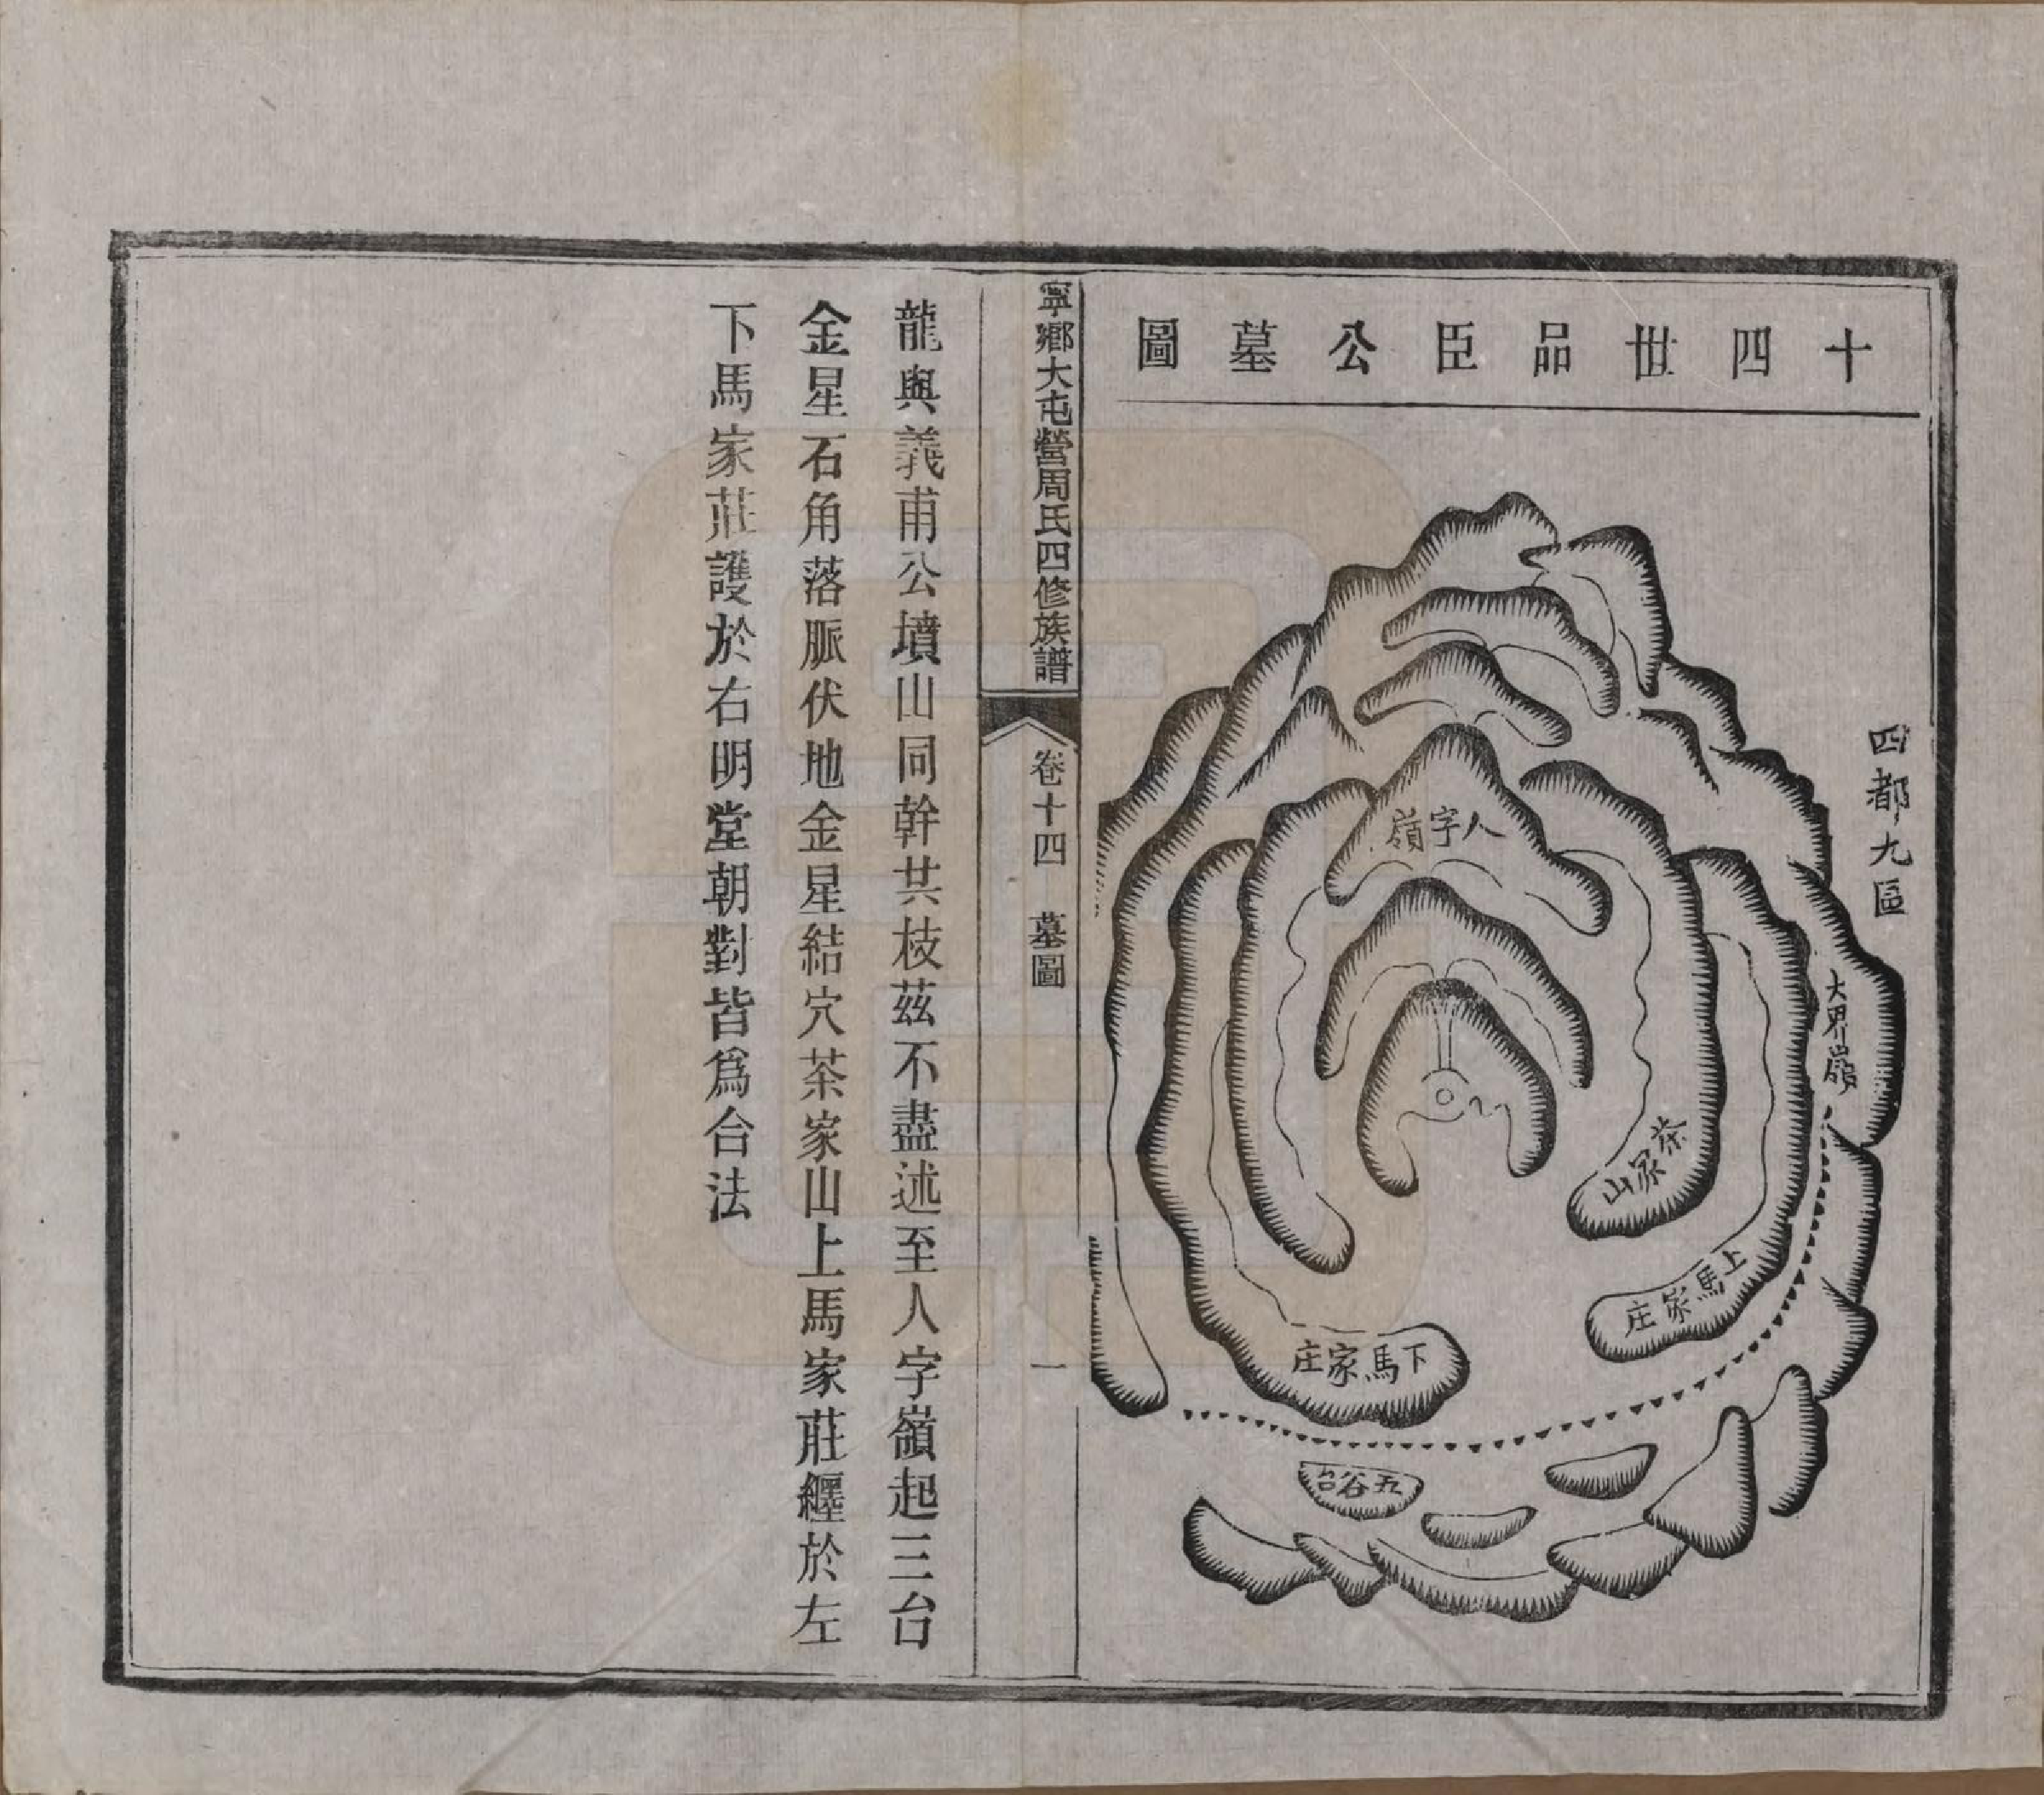 十四世品臣公墓圖
四都九區
大界嶺
人字嶺
茶家山
上馬家庄
下馬家庄
五谷台
寧鄉大屯營周氏四修族譜
卷十四 墓圖
一
龍與義甫公墳山同幹共枝茲不盡述至人字嶺起三台
金星石角落脈伏地金星結穴茶家山上馬家莊纏於左
下馬家莊護於右明堂朝對皆爲合法